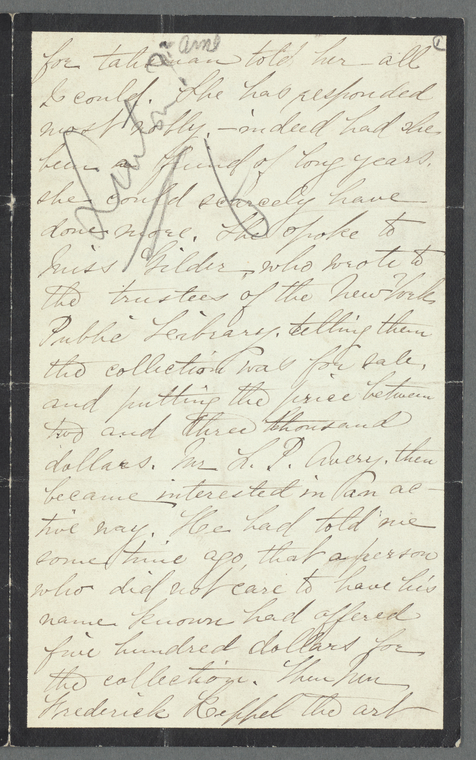 for talisman told her - all
I could. She has responded
most nobly, - indeed had she
been a friend of long years,
she could scarcely have
done more. She spoke to
Miss Gilder, who wrote to
the trustees of the New York
Public Library, telling them
the collection was for sale,
and putting the price between
two and three thousand
dollars. Mr S. P. Avery, then
became interested in an ac-
tive way. He had told me
some time ago, that a person
who did not care to have his
name known had offered
five hundred dollars for
the collection. Then Mr
Frederick Keppel the art